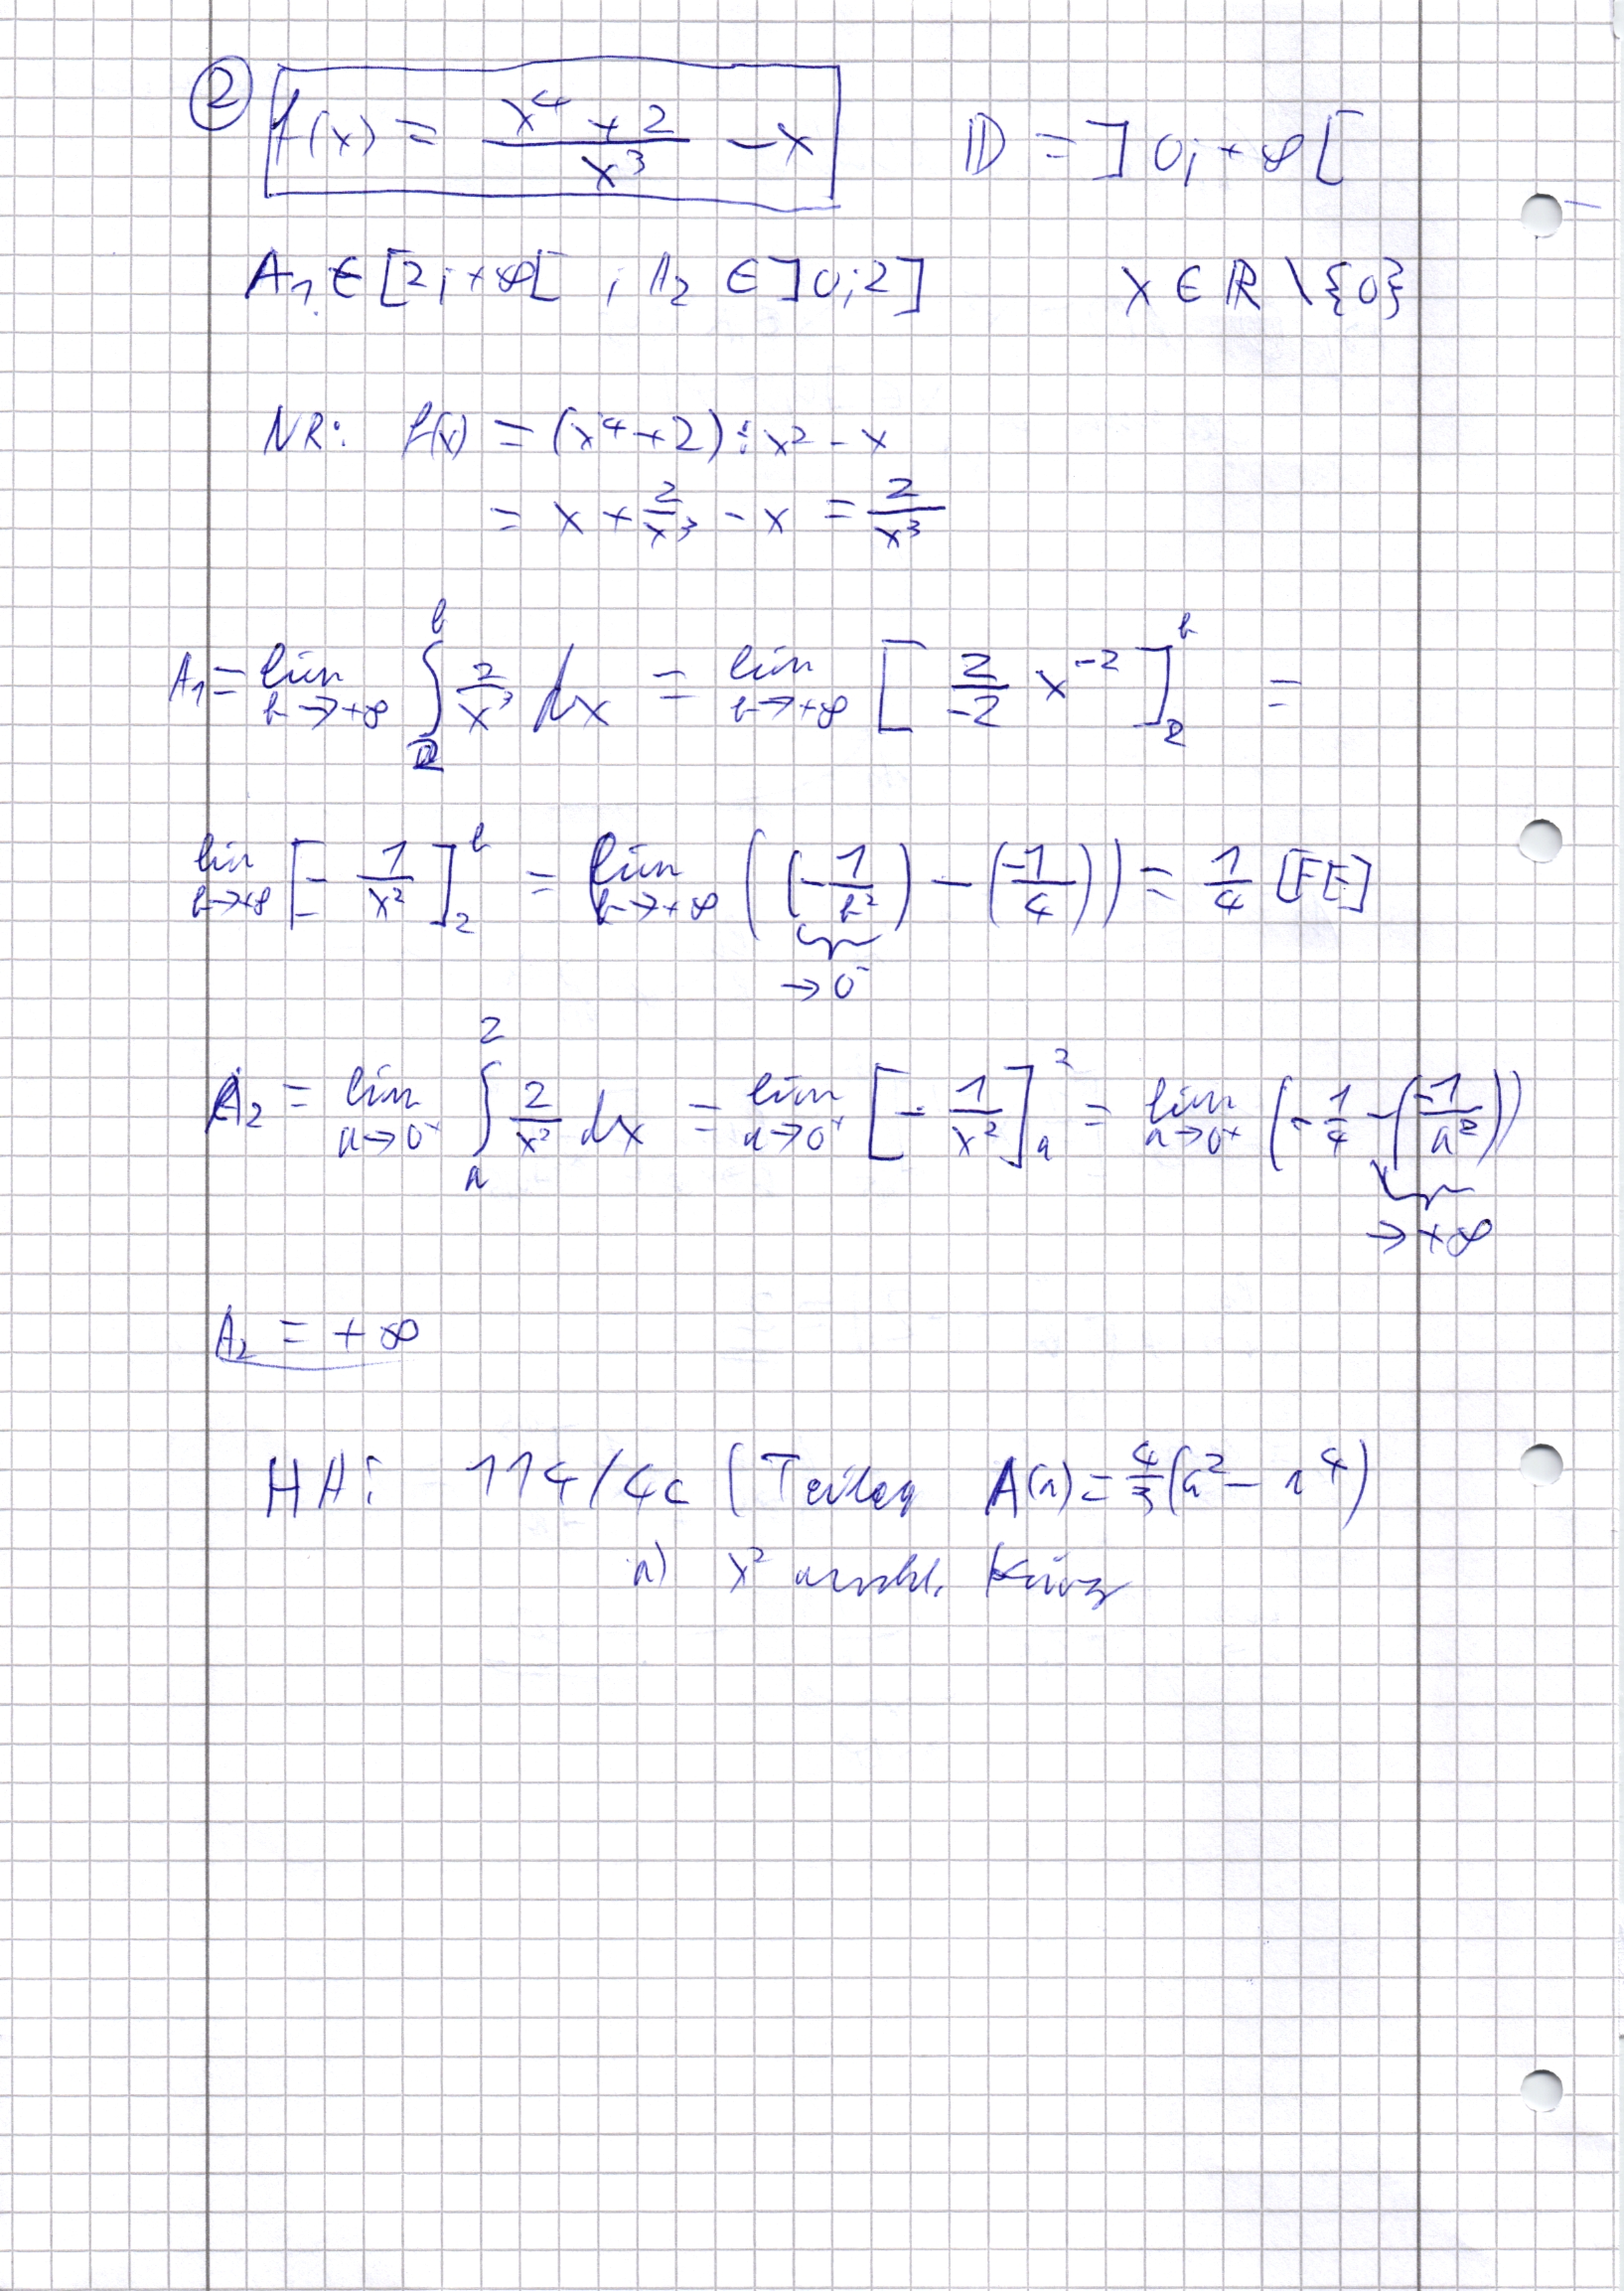 ② f(x) = (x⁴ + 2)/x³ - x    𝔻 = ]0; +∞[
A₁ ∈ [2; +∞[ , A₂ ∈ ]0; 2]    x ∈ ℝ \ {0}
NR: f(x) = (x⁴ + 2) : x² - x
= x + 2/x³ - x = 2/x³
A₁ = lim b→+∞ ∫₂ᵇ 2/x³ dx = lim b→+∞ [2/-2 x⁻²]₂ᵇ =
lim b→+∞ [- 1/x²]₂ᵇ = lim b→+∞ ((- 1/b²) - (-1/4)) = 1/4 [FE]
→ 0⁻
A₂ = lim a→0⁺ ∫ₐ² 2/x² dx = lim a→0⁺ [- 1/x²]ₐ² = lim a→0⁺ (- 1/4 - (-1/a²))
→ +∞
A₂ = +∞
HA: 114/4c ( A(a) = 4/3 (a² - a⁴)
a) x²